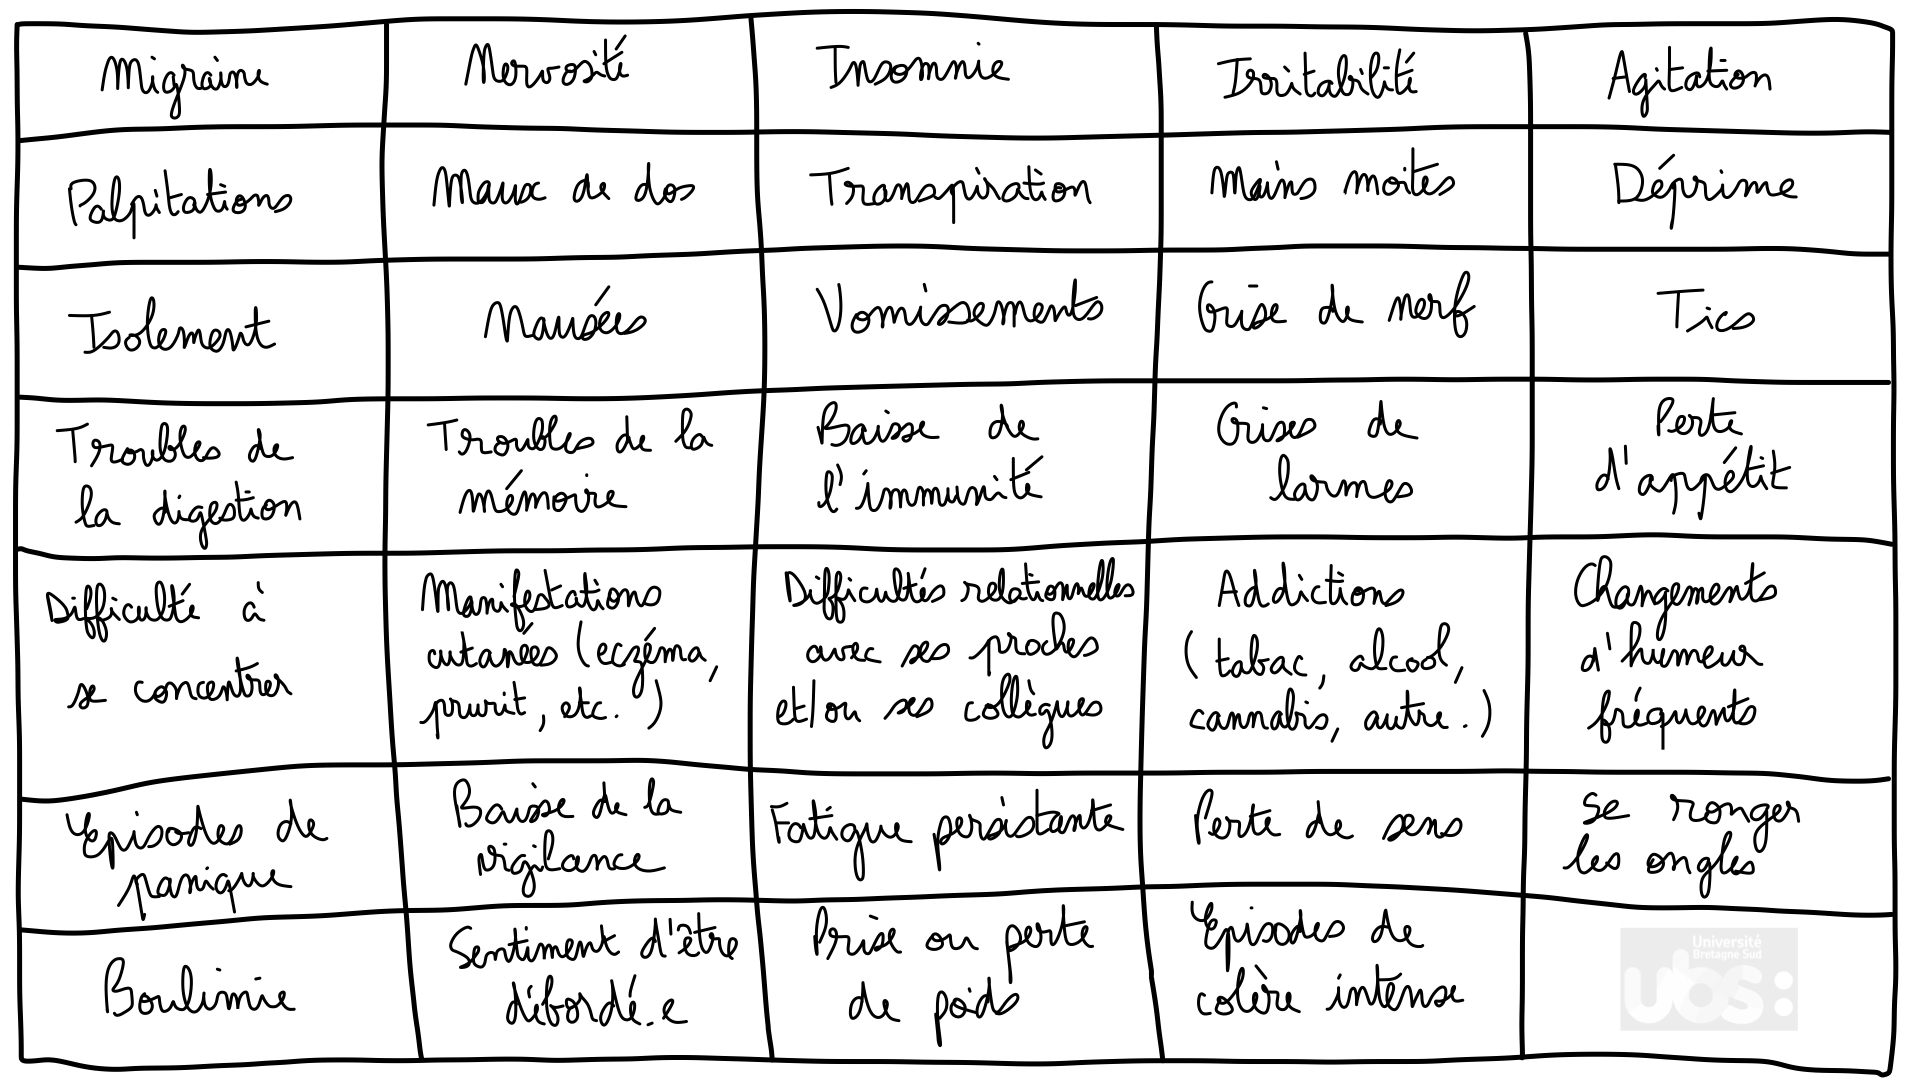 Migraine
Nervosité
Insomnie
Irritabilité
Agitation
Palpitations
Maux de dos
Transpiration
Mains moites
Déprime
Isolement
Nausées
Vomissements
Crise de nerf
Tics
Troubles de
la digestion
Troubles de la
mémoire
Baisse de
l'immunité
Crises de
larmes
Perte
d'appétit
Difficulté à
se concentrer
Manifestations
cutanées (eczéma,
prurit, etc.)
Difficultés relationnelles
avec ses proches
et/ou ses collègues
Addictions
(tabac, alcool,
cannabis, autre.)
Changements
d'humeur
fréquents
Episodes de
panique
Baisse de la
vigilance
Fatigue persistante
Perte de sens
Se ronger
les ongles
Boulimie
Sentiment d'être
débordé.e
Prise ou perte
de poids
Episodes de
colère intense
Université
Bretagne Sud
ubs: